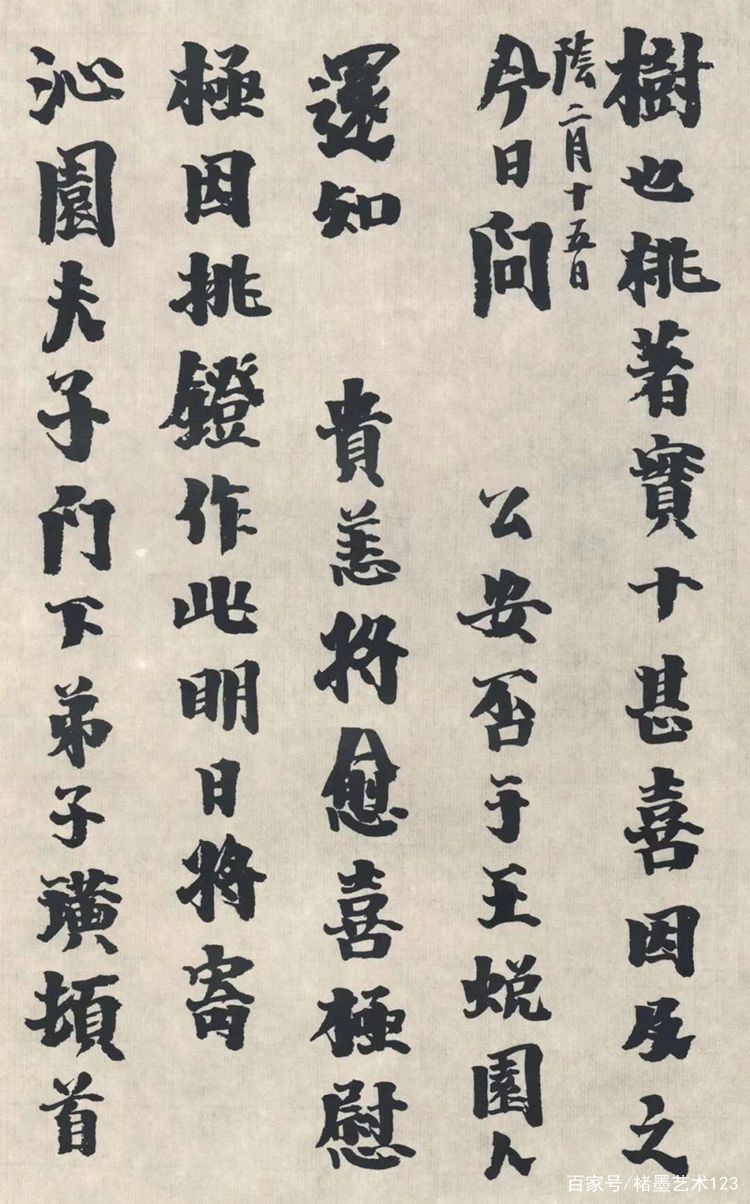 樹也桃著實十甚喜因及之
陰二月十五日
今日問 公安否于王蛻園人
還知 貴恙將愈喜極慰
極因挑鐙作此明日將寄
沁園夫子門下弟子璜頓首
百家号/楮墨艺术123